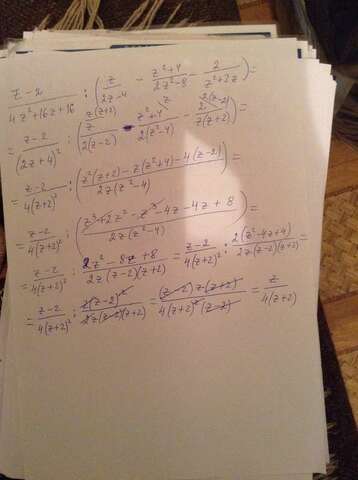 z-2 / 4z²+16z+16 : ( z / 2z-4 - z²+4 / 2z²-8 - 2 / z²+2z ) =
= z-2 / (2z+4)² : ( z(z+2) z / 2(z-2) - z z²+4 / 2(z²-4) - 2(z-2) 2 / z(z+2) ) =
= z-2 / 4(z+2)² : ( z²(z+2)-z(z²+4)-4(z-2) / 2z(z²-4) ) =
= z-2 / 4(z+2)² : ( z³+2z²-z³-4z-4z+8 / 2z(z²-4) ) =
= z-2 / 4(z+2)² : 2z²-8z+8 / 2z(z-2)(z+2) = z-2 / 4(z+2)² : 2(z²-4z+4) / 2z(z-2)(z+2) =
= z-2 / 4(z+2)² : 2(z-2)² / 2z(z-2)(z+2) = (z-2)z(z+2) / 4(z+2)²(z-2) = z / 4(z+2)